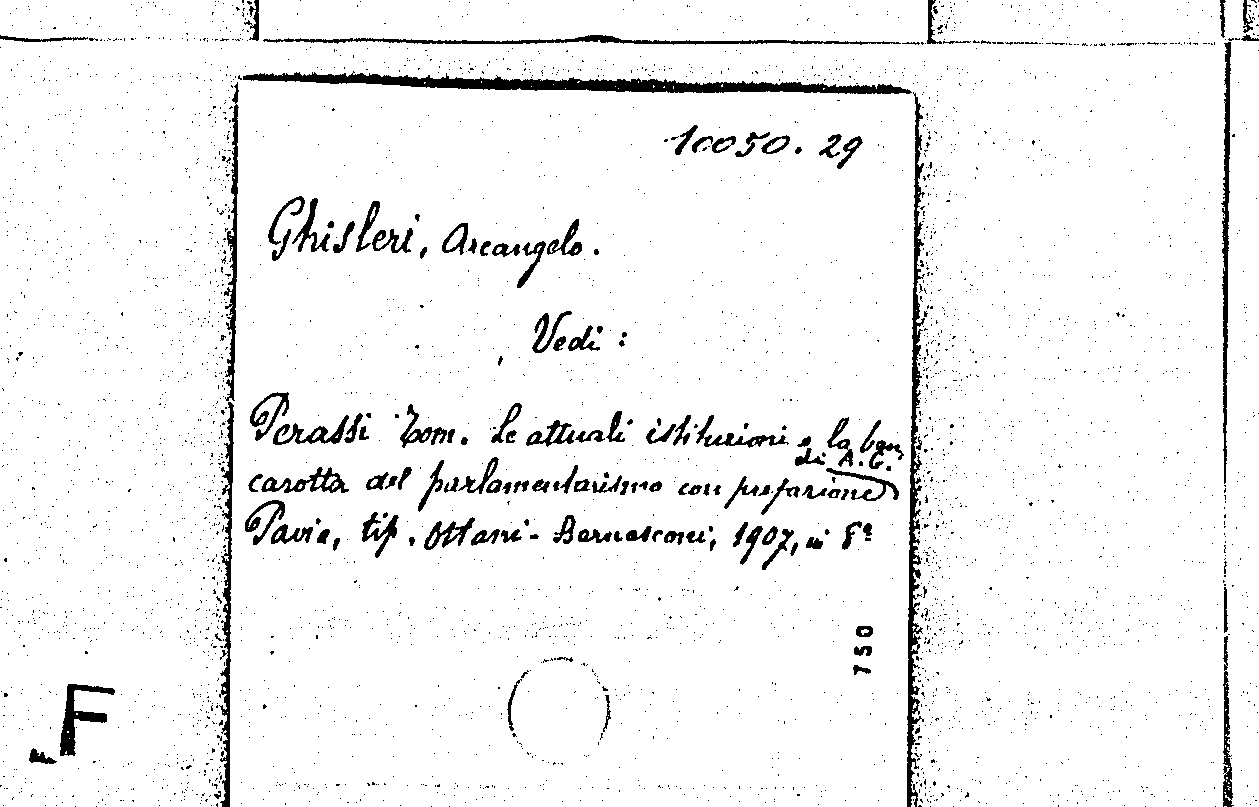 10050. 29
Ghisleri, Arcangelo.
Vedi :
Perassi Tom. Le attuali istituzioni e la ban
carotta del parlamentarismo con prefazione di A.G.
Pavia, tip. Ottani - Bernasconi, 1907, in 8º
750
F